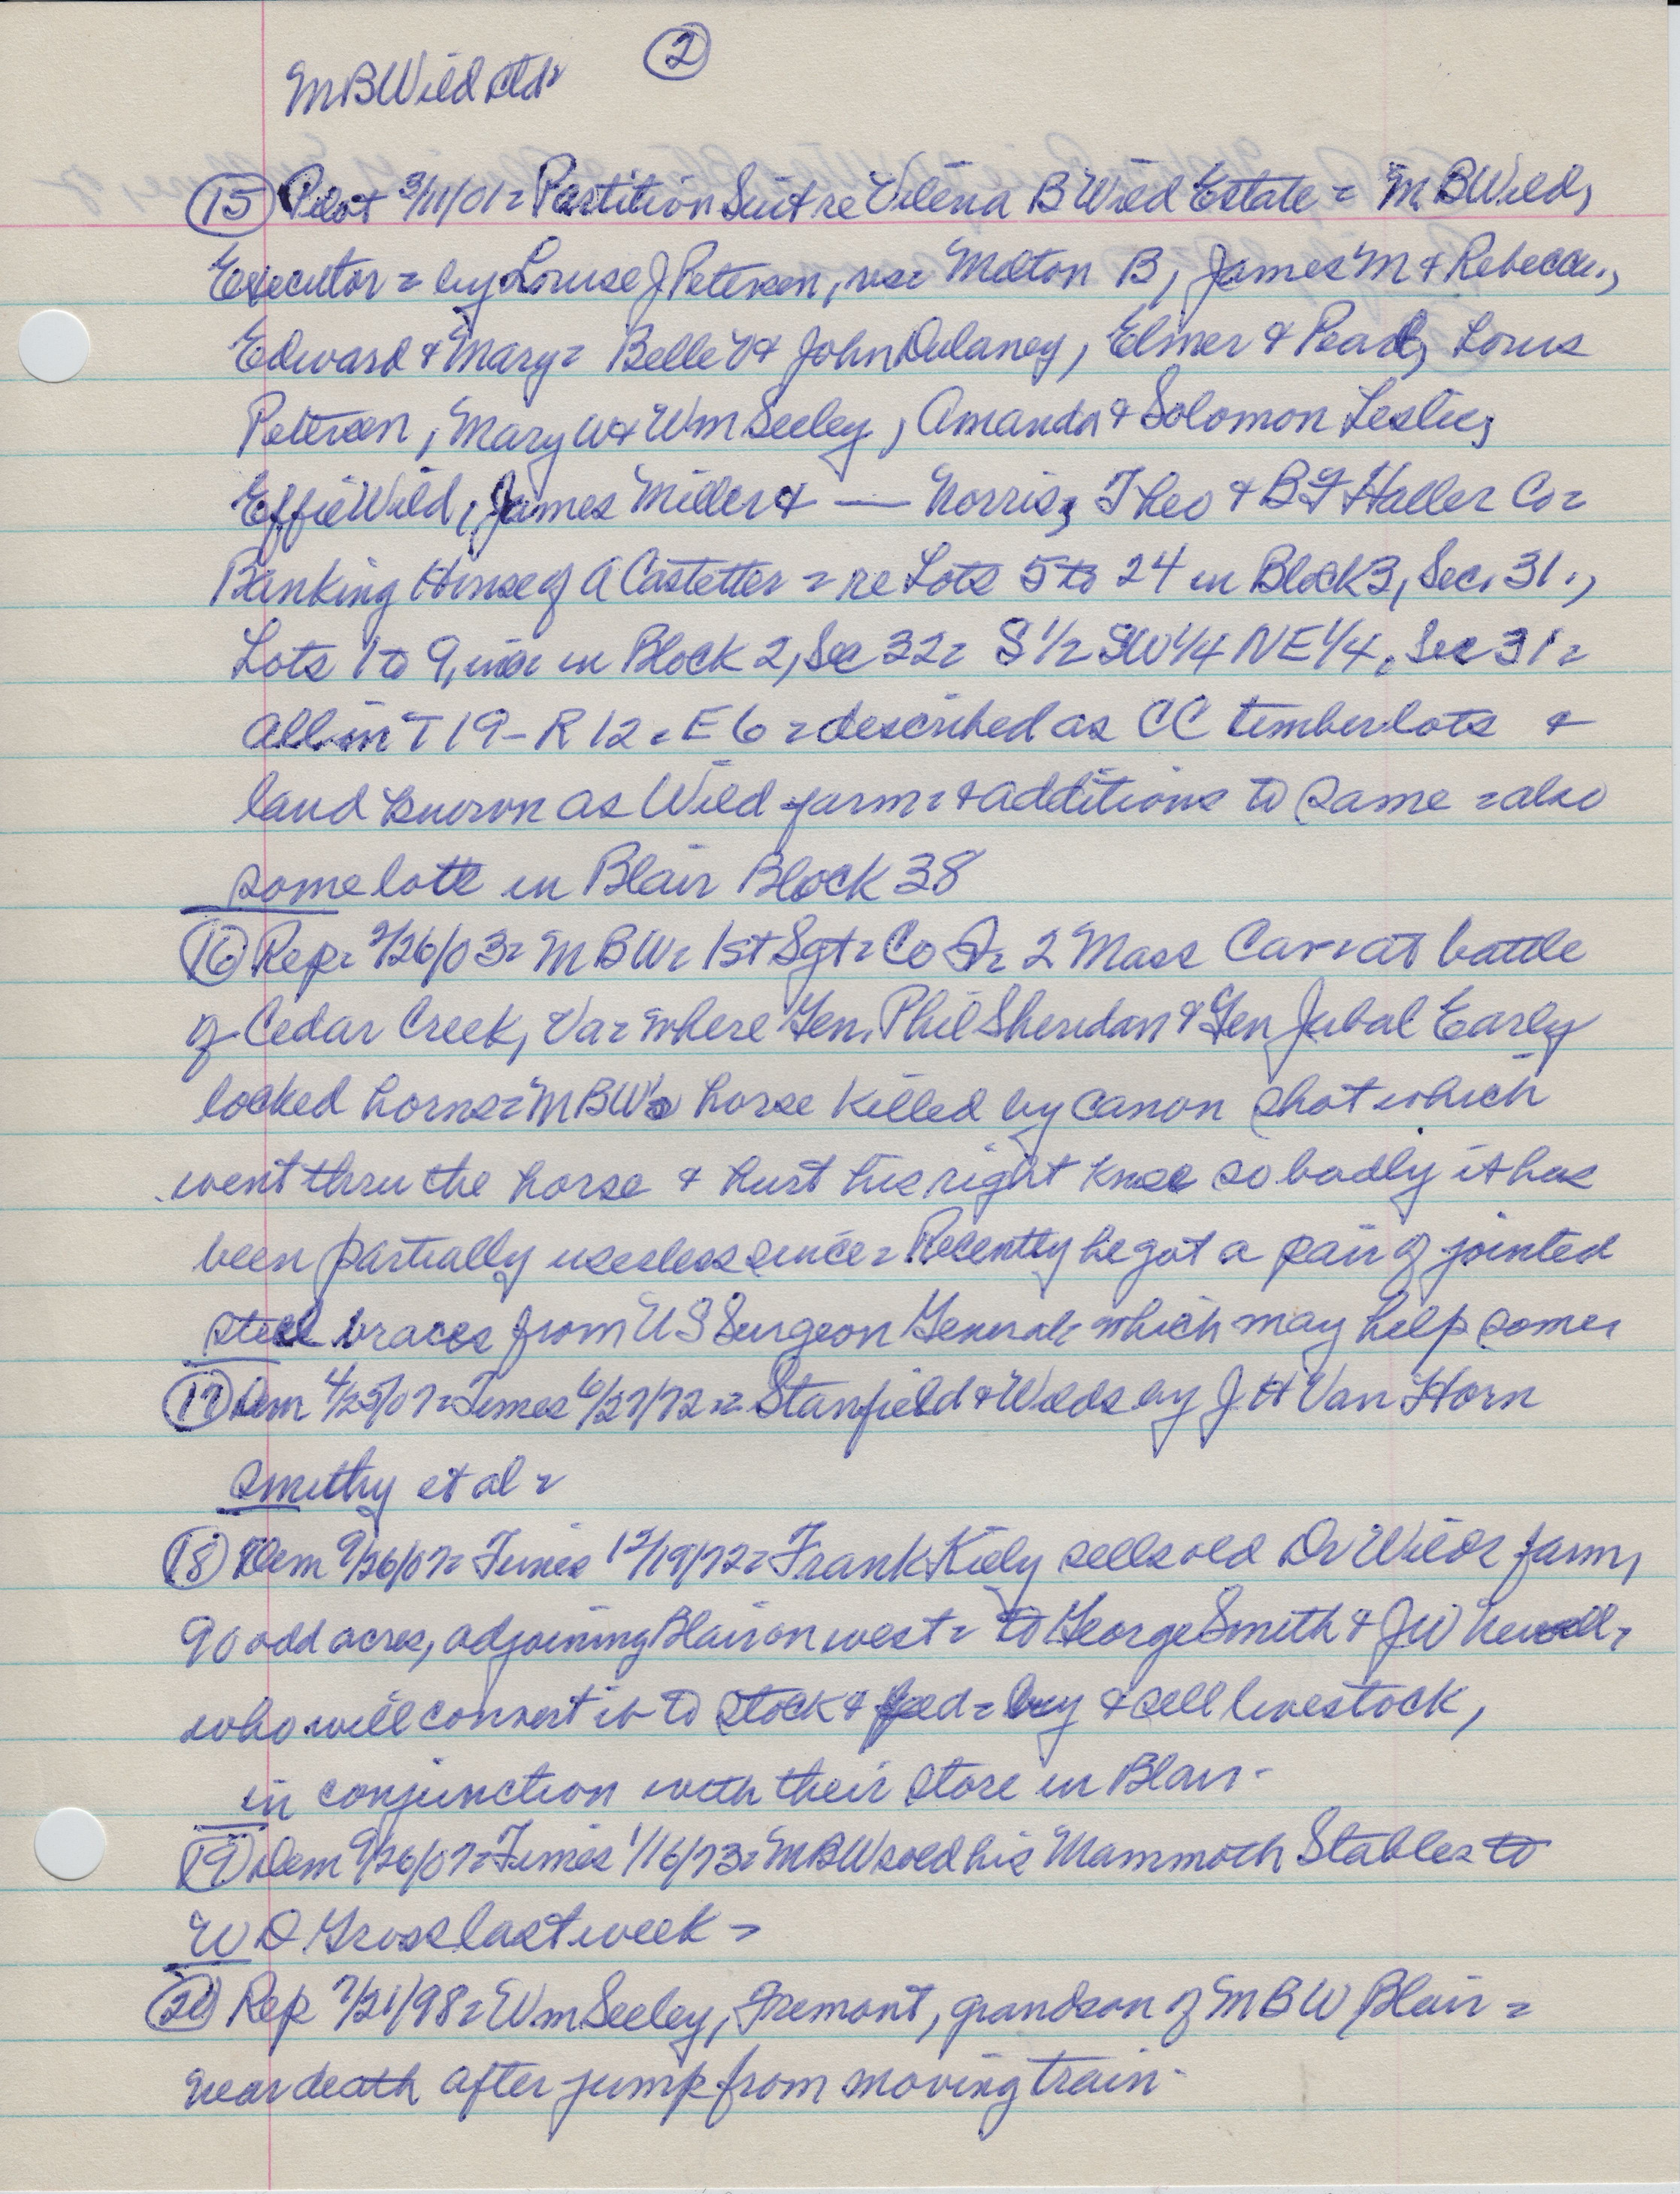 ②
MBWild
⑮ Pilot 3/11/01 = Partition Suit re Vilena B Wild Estate = M.B Wild,
Executor = by Louise J Petersen, vs = Milton B, James M & Rebecca.,
Edward & Mary = Belle V & John Dulaney, Elmer & Pearl, Louis
Petersen, Mary W & Wm Seeley, Amanda & Solomon Leslie,
Effie Wild, James Miller & — Norris, Theo & BF Haller Co =
Banking House of A Castetter = re Lots 5 to 24 in Block 3, Sec. 31.,
Lots 1 to 9, in Block 2, Sec 32 = S 1/2 SW 1/4 NE 1/4, Sec 31 =
all in T 19 - R 12 = E 6 = described as CC timberlots &
land known as Wild farm = & additions to same = also
some lots in Blair Block 38
⑯ Rep = 2/26/03 = M B W = 1st Sgt = Co = 2 Mass Cav = at battle
of Cedar Creek, Va = where Gen. Phil Sheridan & Gen Jubal Early
locked horns = MBW's horse killed by canon shot which
went thru the horse & hurt his right knee so badly it has
been partially useless since = Recently he got a pair of jointed
steel braces from US Surgeon General = which may help some =
⑰ Dem 4/25/07 = Times 6/27/72 = Stanfield & Wilds by J H Van Horn
smithy et al =
⑱ Dem 9/26/07 = Times 12/19/72 = Frank Kiely sells old Dr Wilds farm,
90 odd acres, adjoining Blair on west = to George Smith & JW Newell =
who will convert it to stock & feed = buy & sell livestock,
in conjunction with their store in Blair -
⑲ Dem 9/26/07 = Times 1/16/73 = MBW sold his Mammoth Stables to
W D Gross last week =
⑳ Rep 7/21/98 = Wm Seeley, Fremont, grandson of MBW Blair =
near death after jump from moving train -